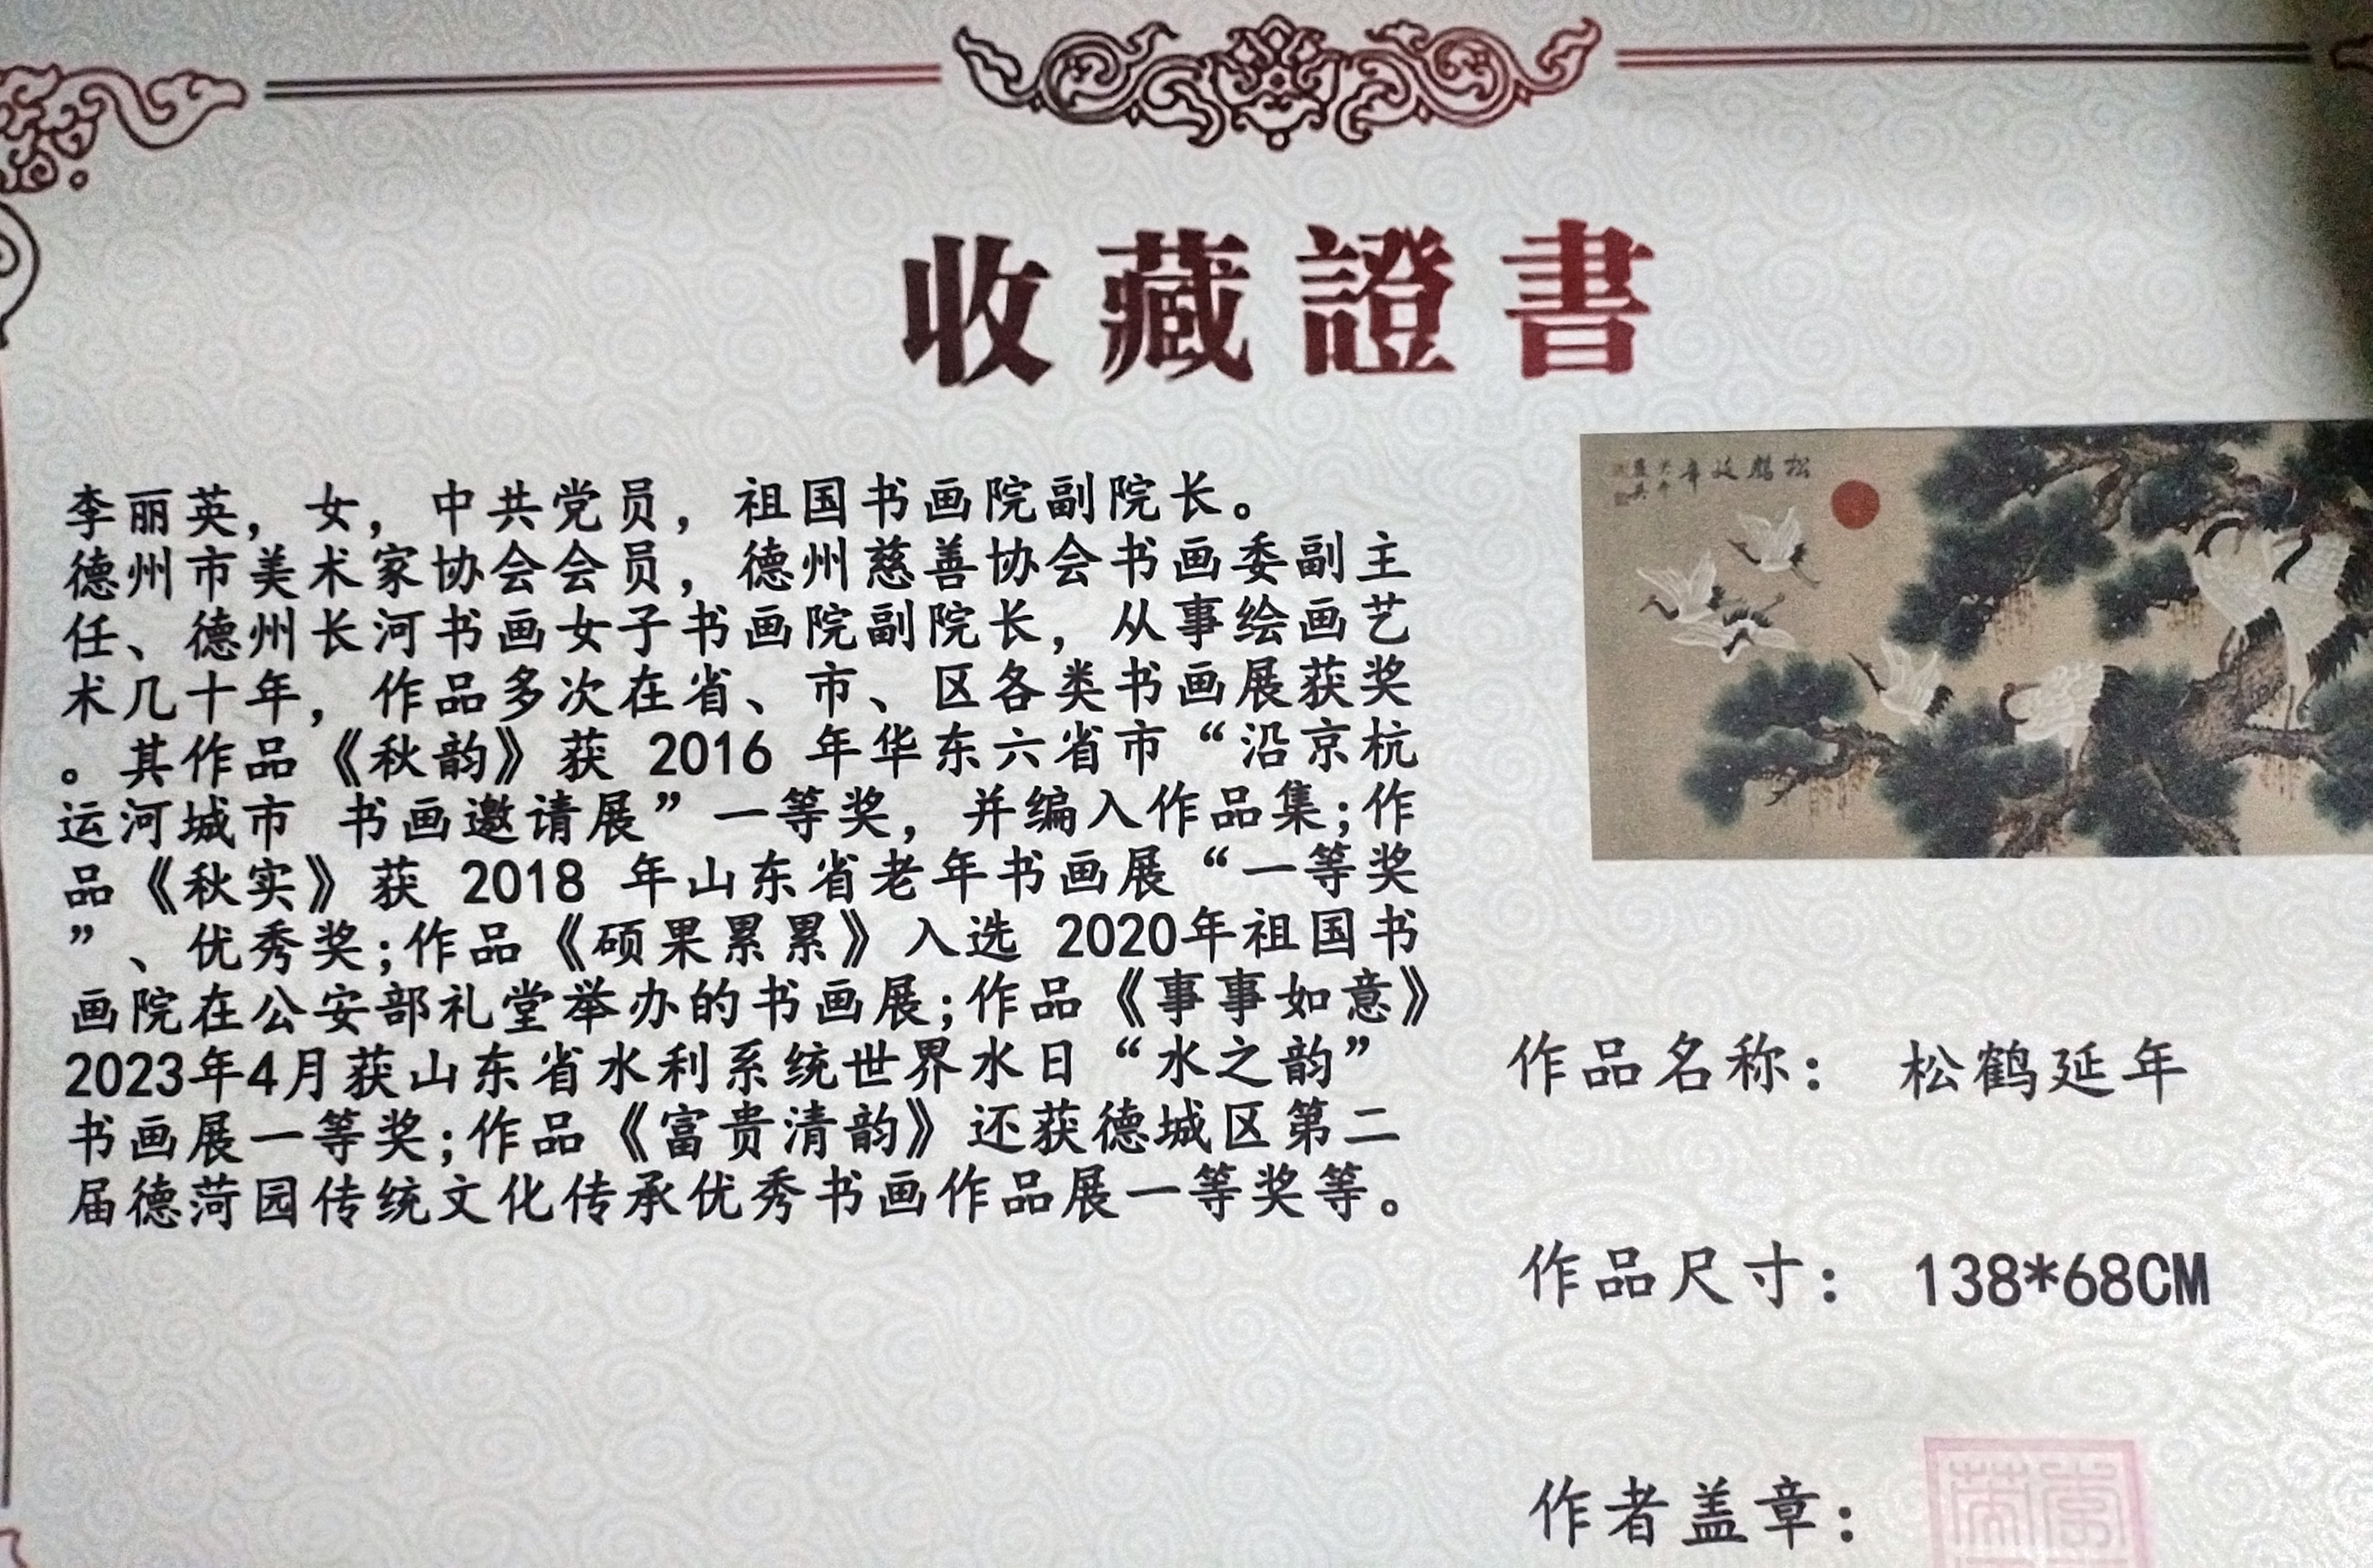 收藏證書
李丽英，女，中共党员，祖国书画院副院长。
德州市美术家协会会员，德州慈善协会书画委副主
任、德州长河书画女子书画院副院长，从事绘画艺
术几十年，作品多次在省、市、区各类书画展获奖
。其作品《秋韵》获 2016 年华东六省市“沿京杭
运河城市 书画邀请展”一等奖，并编入作品集;作
品《秋实》获 2018 年山东省老年书画展“一等奖
”、优秀奖;作品《硕果累累》入选 2020年祖国书
画院在公安部礼堂举办的书画展;作品《事事如意》
2023年4月获山东省水利系统世界水日“水之韵”
书画展一等奖;作品《富贵清韵》还获德城区第二
届德菏园传统文化传承优秀书画作品展一等奖等。
松鶴延年
作品名称： 松鹤延年
作品尺寸： 138*68CM
作者盖章：